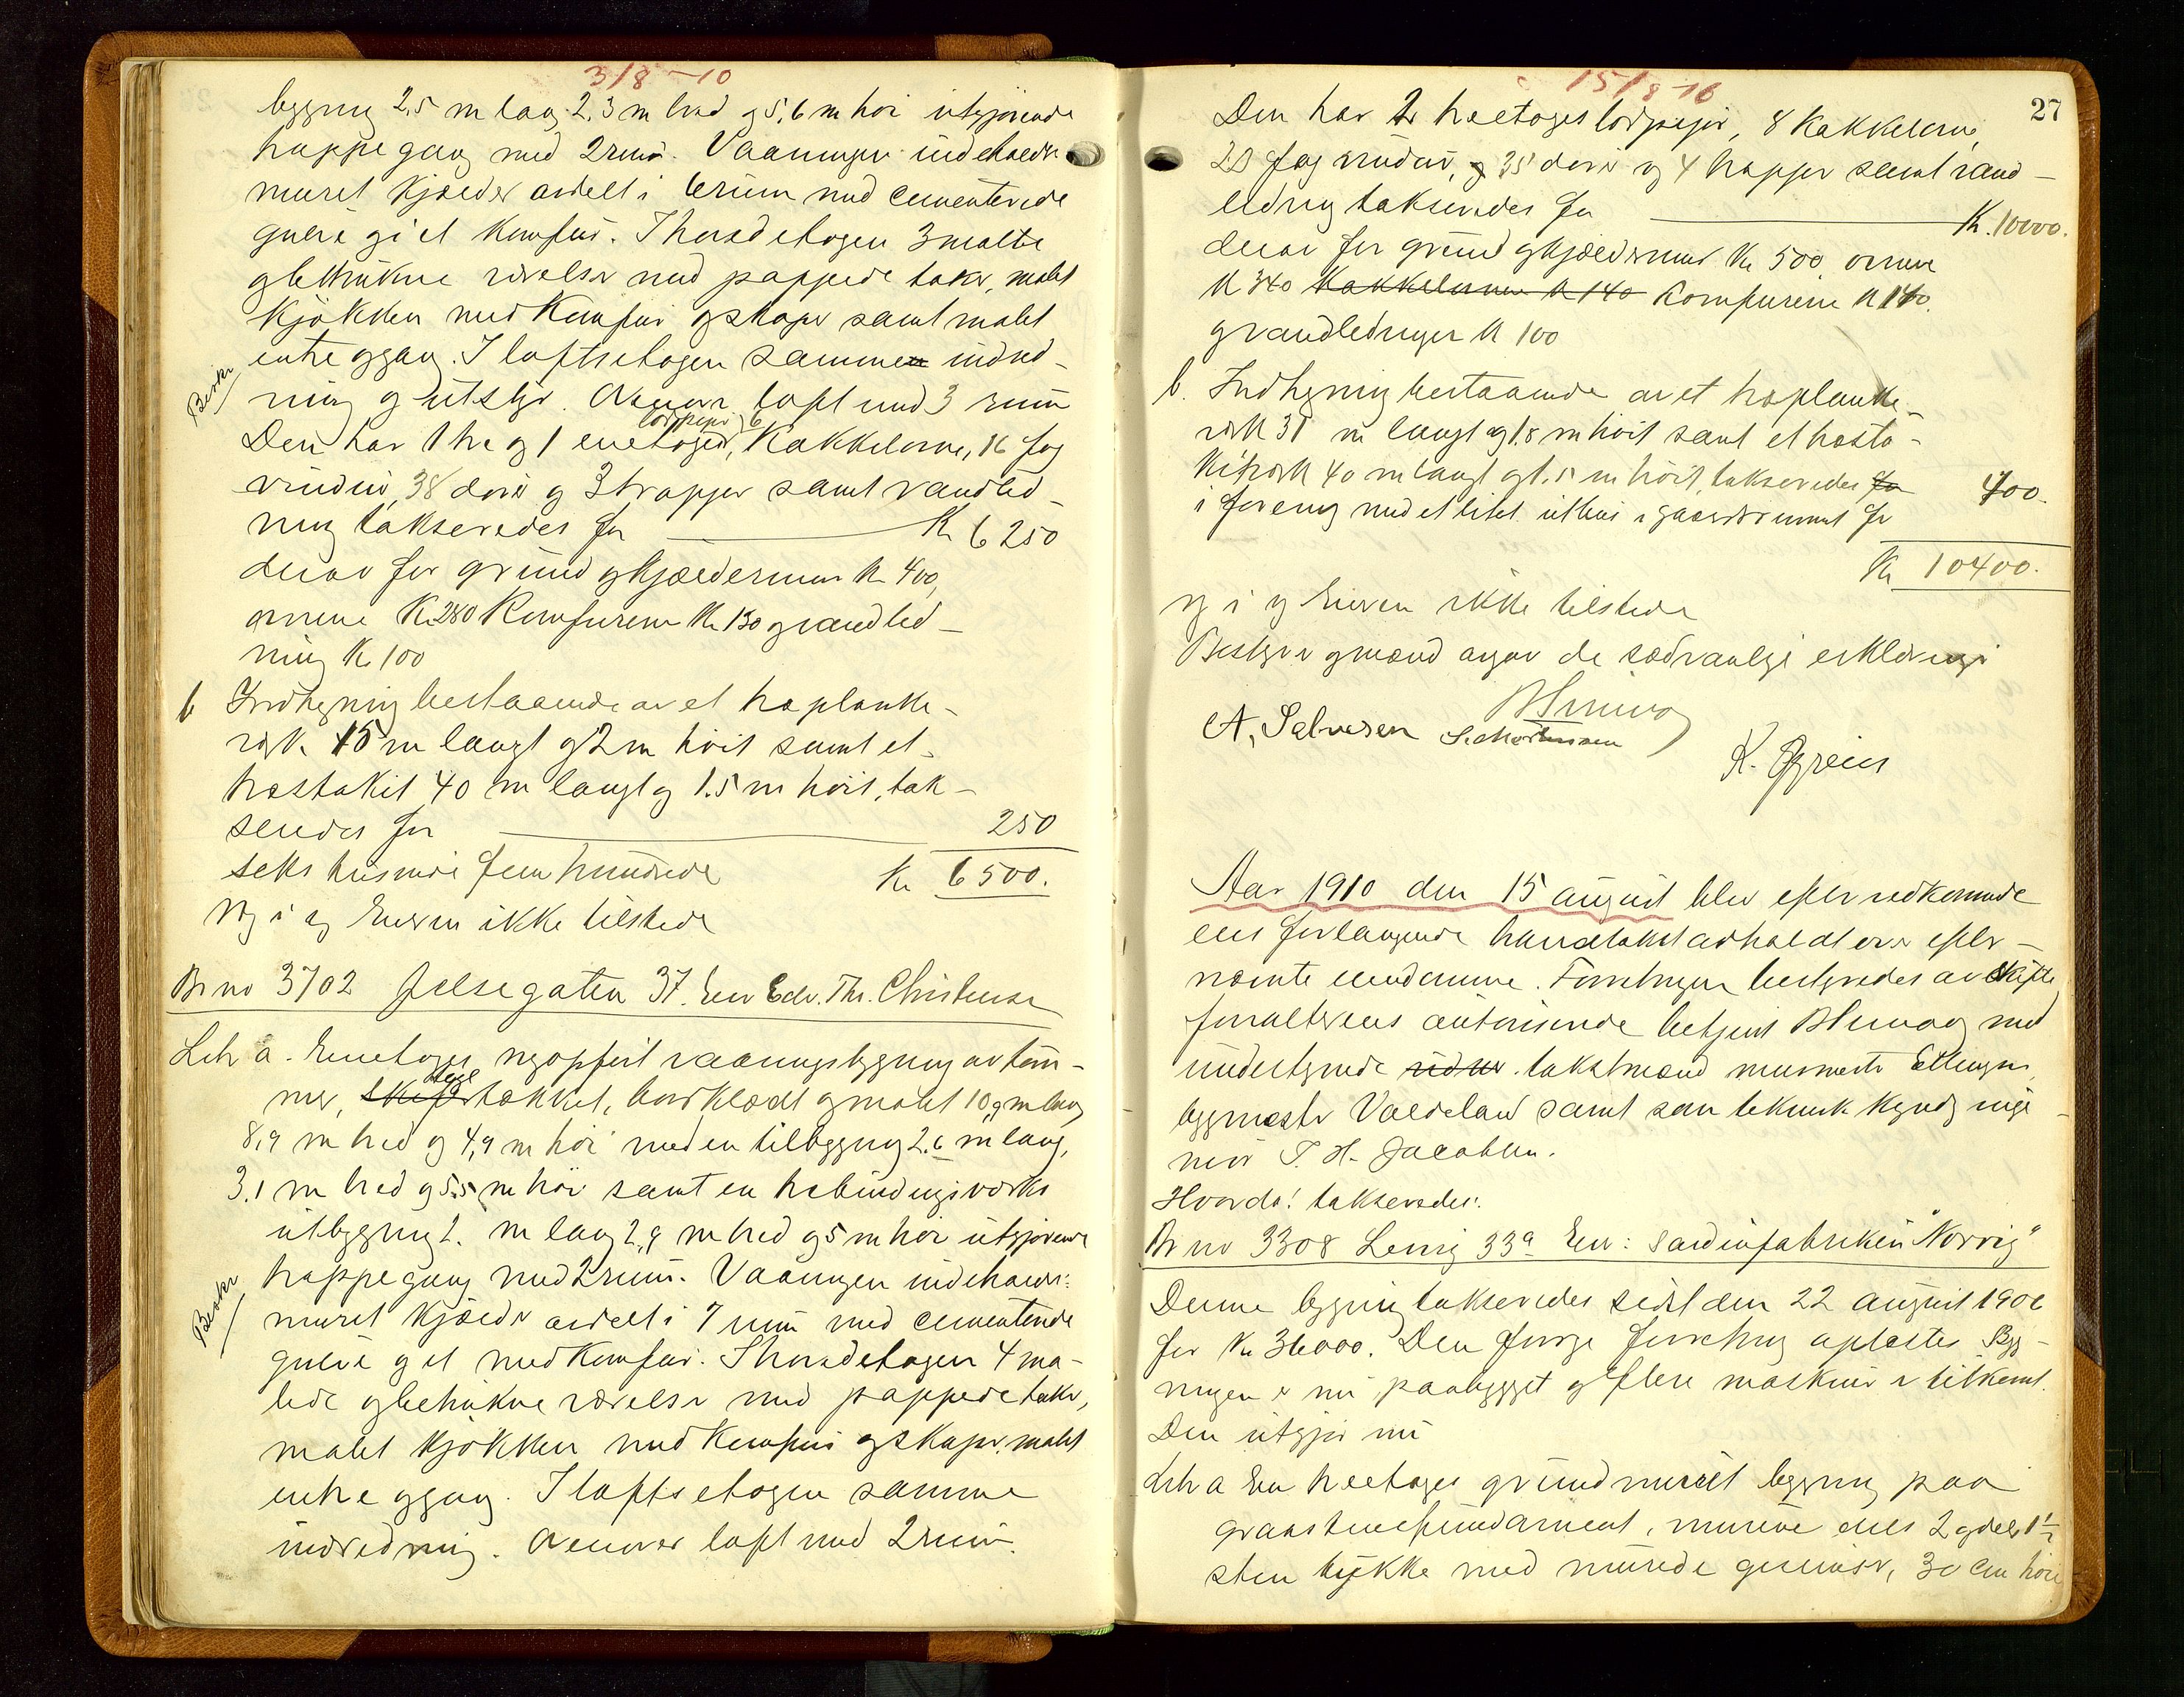 3/8 - 10
bygning 2,5 m lang 2,3 m bred og 5,6 m höi utgjörende
trappegang med 2 rum. Vaaningen indeholder
muret kjælder avdelt i 6 rum med cementerede
gulve og i et komfur. I 1ste etagen 3 malte
og betrukne værelser med pappede taker, malet
kjökken med komfur og skaper samt malet
entre og gang. I loftsetagen samme indred-
Beskr
ning og utstyr. Ovenover loft med 3 rum
lodpiper, 6
Den har 1 tre og 1 enetoges, Kakkelovne, 16 fag
vinduer, 38 dörer og 3 trapper samt vandled-
ning takseredes for Kr 6250
derav for grund og kjældermur Kr 400,
ovnene Kr 280 Komfurene Kr 130 og vandled-
ning Kr 100
b Indhegning bestaaende av et træplanke-
verk 15 m langt og 2 m höit samt et
træstakit 40 m langt og 1.5 m höit, tak-
seredes for 250
seks tusinde fem hundrede Kr 6500.
Ny i og Eieren ikke tilstede
Br no 3702 Jelsegaten 37. Eier Edv. Thr. Christensen
Litr a. Enetoges nyopfört vaaningsbygning av töm-
tegl
mer, skifertækket, bordklædt og malet 10,9 m lang
8,9 m bred og 4,9 m höi med en tilbygning 2.6 m lang,
3.1 m bred og 5.5 m höi samt en træbindingsverks
utbygning 2. m lang 2,9 m bred og 5 m höi utgjörende
trappegang med 2 rum. Vaaningen indeholder:
Beskr
muret kjælder avdelt i 7 rum med cementerede
gulve og et med komfur. I 1ste etagen 4 ma-
lede og betrukne værelser med pappede taker,
malet kjökken med komfur og skaper, malet
entre og gang. I loftsetagen samme
indredning. Ovenover loft med 2 rum.
15/8 - 10
27
Den har 2 treetoges lodpiper, 8 Kakkelovne,
20 fag vinduer, 35 dörer og 4 trapper samt vand-
ledning takseredes for Kr. 10000.
derav for grund og kjældermur Kr 500, ovnene
Kr 340 Kakkelovnene Kr 140 Komfurene Kr 140.
og vandledningen Kr 100
b. Indhegning bestaaende av et træplanke-
verk 31 m langt og 1.8 m höit samt et træsta-
kitverk 40 m langt og 1.5 m höit, takseredes for
i forening med et litet uthus i gaardsrummet for 400.
Kr 10400.
Ny i og Eieren ikke tilstede
Bestyrer og mænd avgav de sædvanlige erklæringer
A. Salvesen
Aar 1910 den 15 august blev efter vedkommende
eiers forlangende branntakst avholdt over efter-
nævnte eiendomme. Forretningen bestyredes av Skifte
forvalterens autoriserede betjent med
undertegnede takstmænd murmester Ellingsen
bygmester Valdeland samt som teknisk kyndig inge-
niör T. H. Jacobsen.
Hvorda! takseredes:
Br no 3308 Lervig 33a Eier: Sardinfabriken "Norvig"
Denne bygning takseredes sidst den 22 august 1906
for Kr 36000. Den forrige forretning oplæstes. Byg-
ningen er nu paabygget og flere maskiner er tilkomt.
Den utgjör nu
Litr a En treetages grundmuret bygning paa
graastensfundament, murene dels 2 og dels 1½
sten tykke med murede gesimser, 30 cm höie